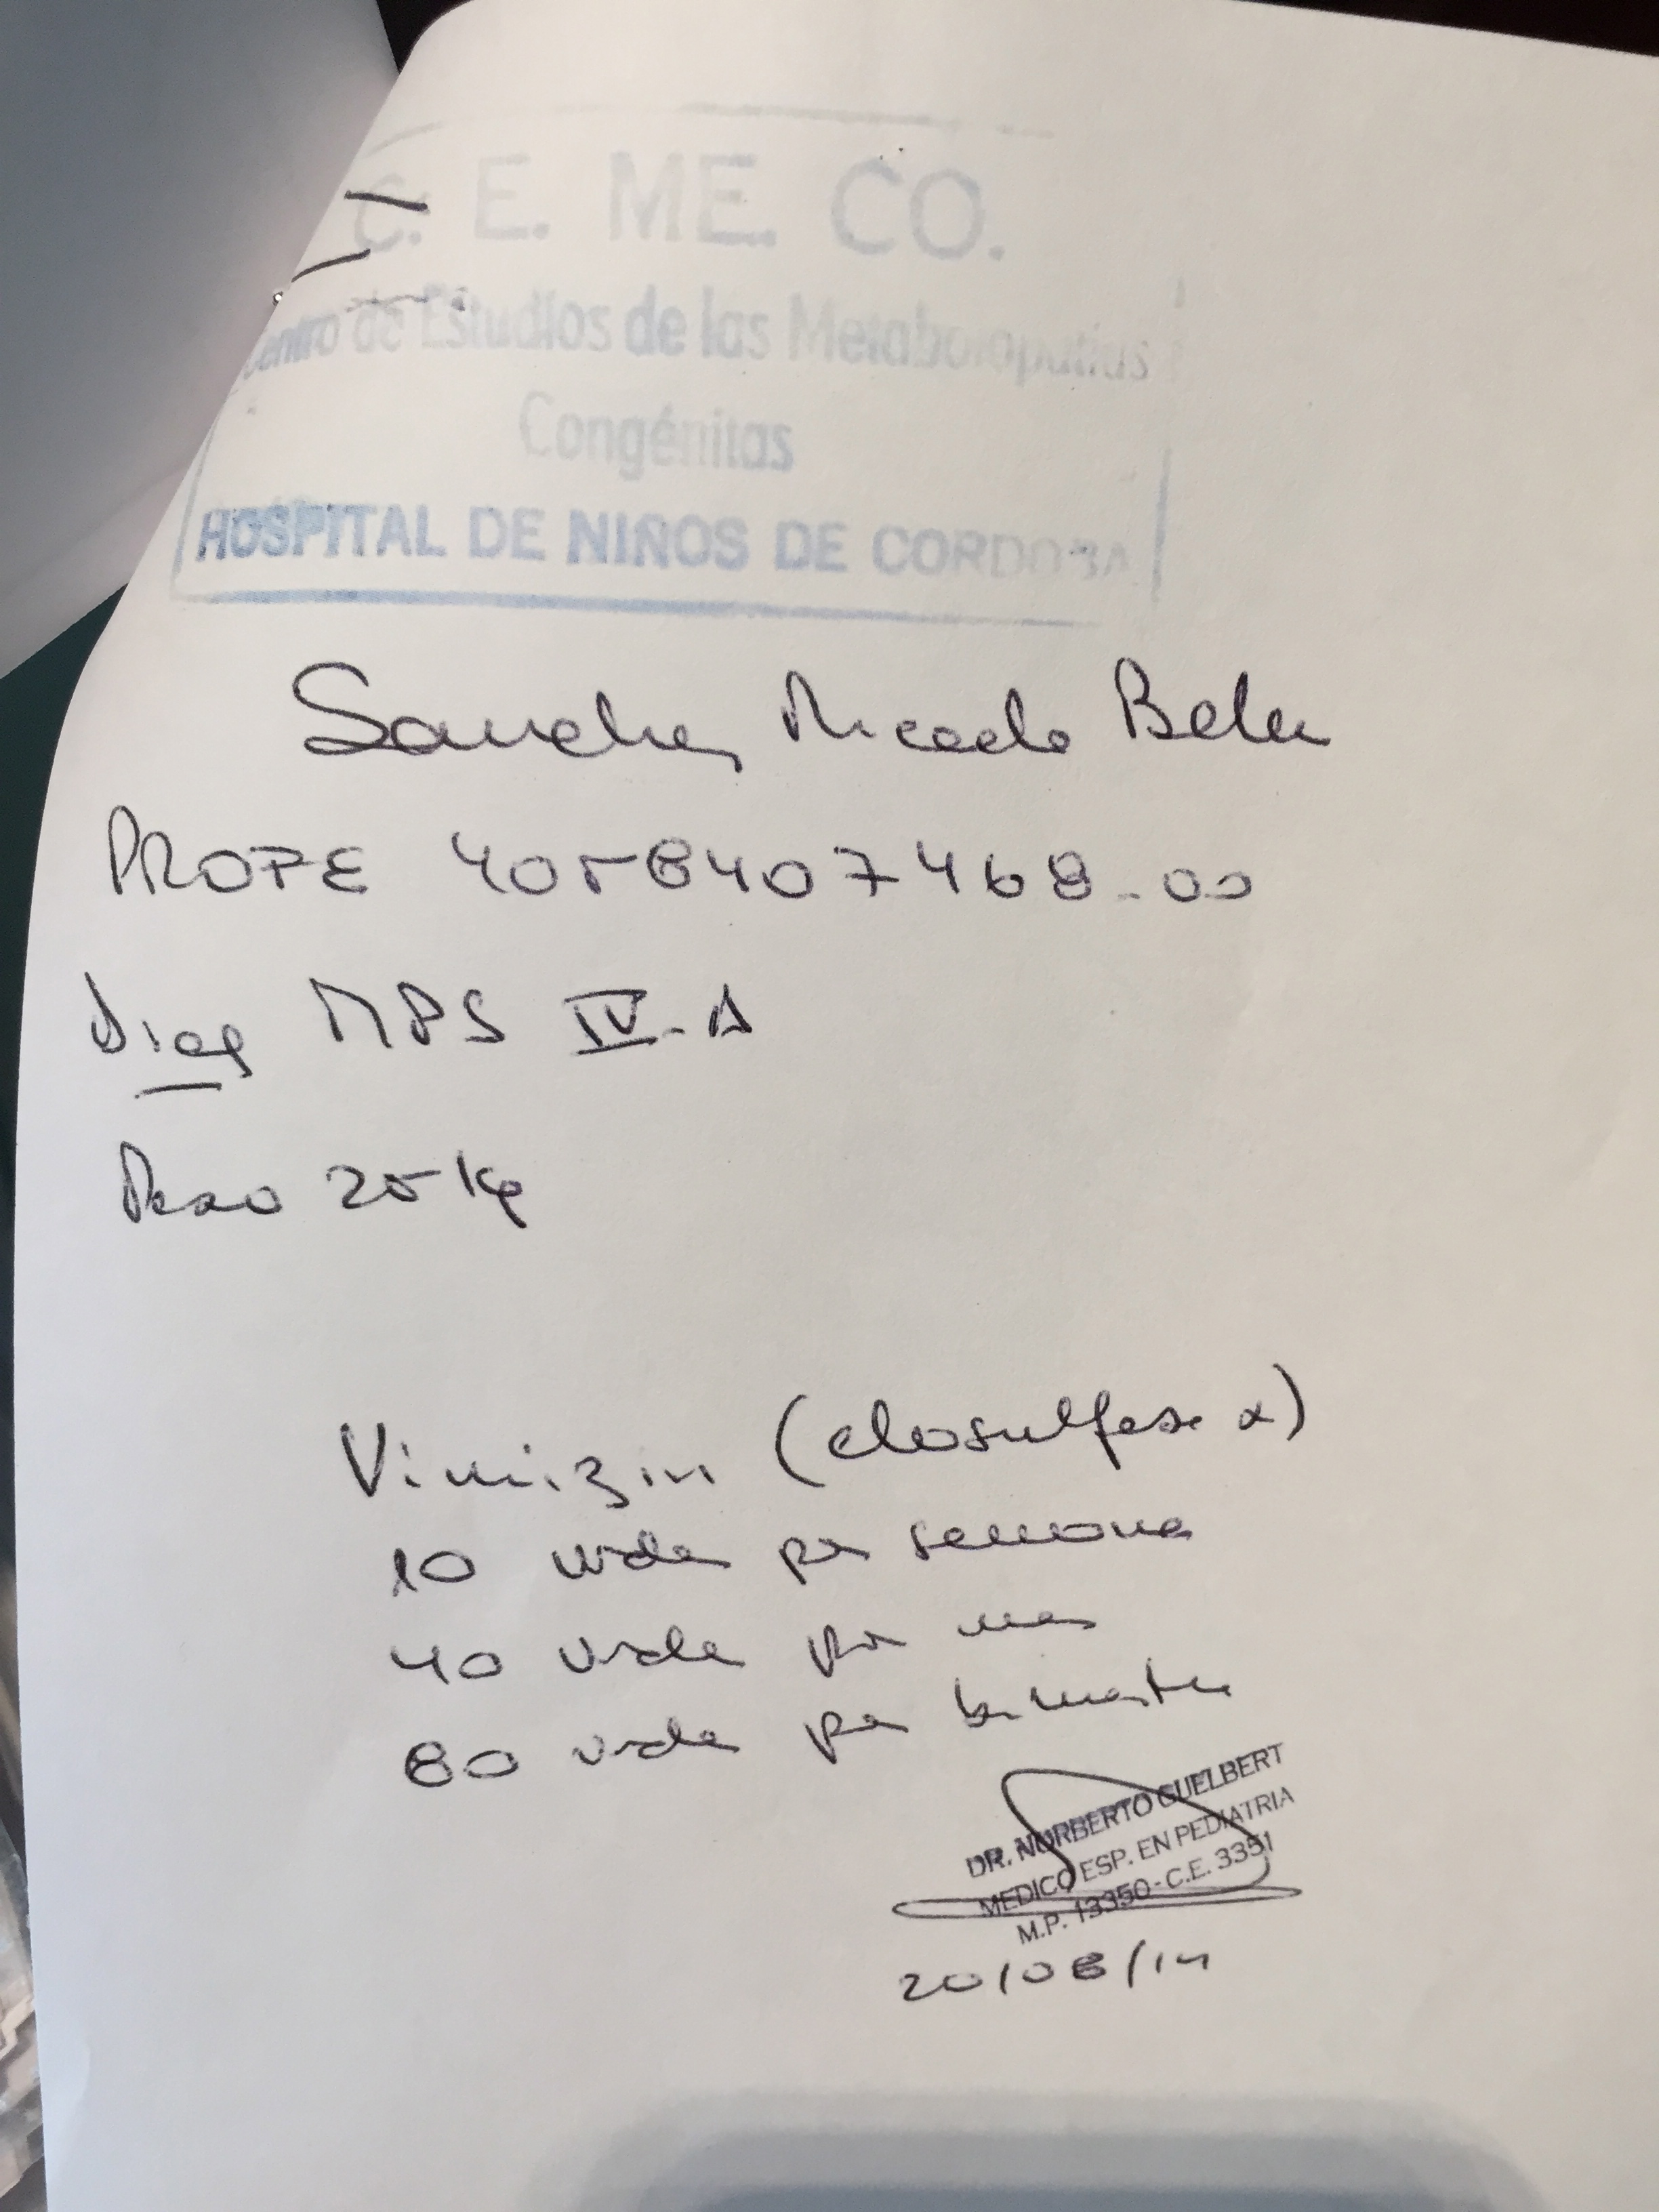 C. E. ME. CO.
Centro de Estudios de las Metabolopatías
Congénitas
HOSPITAL DE NIÑOS DE CORDOBA
Sanchez Belen
PROFE 4058407468-00
Diag MPS IV-A
Peso 25 Kg
Vimizin (elosulfase α)
10 viales por semana
40 viales por mes
80 viales por bimestre
DR. NORBERTO GUELBERT
MEDICO ESP. EN PEDIATRIA
M.P. 13350 - C.E. 3351
20/08/14